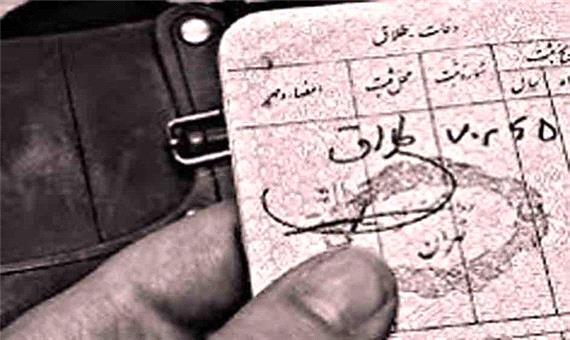 دفعات طلاق
ثبت
سال شماره ثبت محل ثبت امضاء و مهر
طلاق
تهران